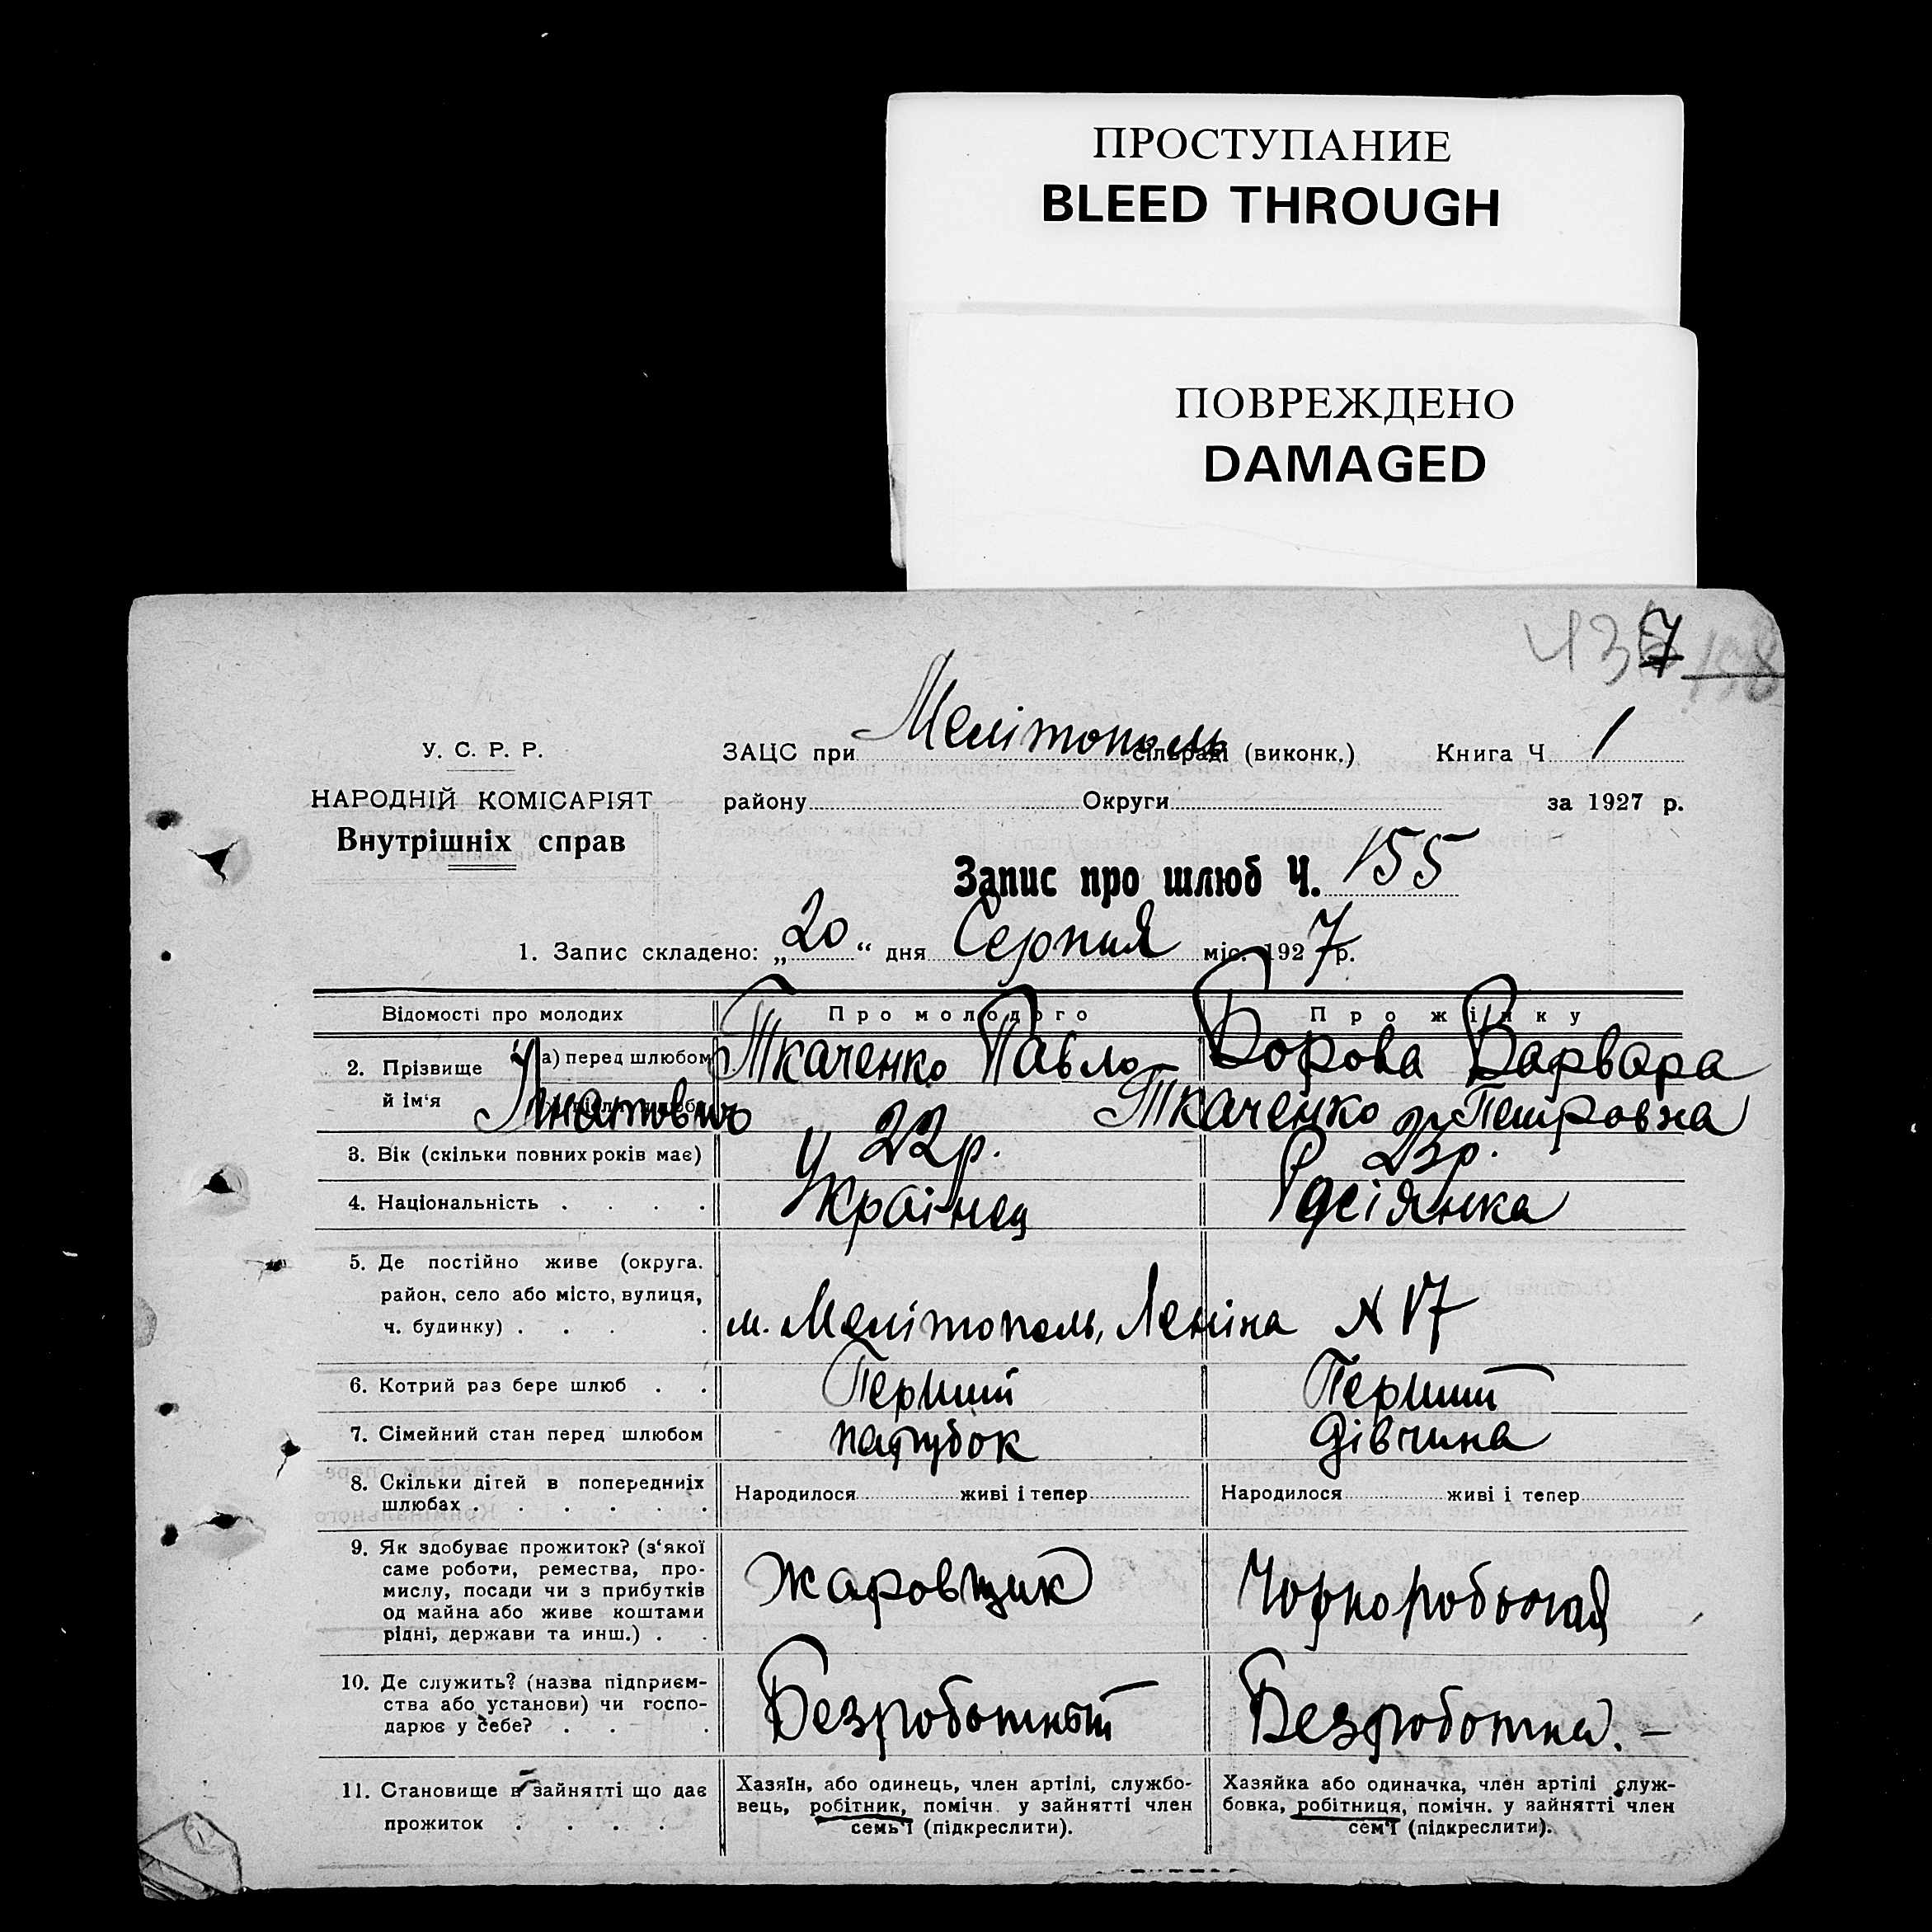 ПРОСТУПАНИЕ
BLEED THROUGH
ПОВРЕЖДЕНО
DAMAGED
437 158
У. С. Р. Р.
НАРОДНІЙ КОМІСАРІЯТ
Внутрішніх справ
ЗАЦС при Мелітополь сільраді (виконк.) Книга Ч. 1
району Округи за 1927 р.
Запис про шлюб Ч. 155
1. Запис складено: „20“ дня Серпня міс. 1927 р.
Відомості про молодих Про молодого Про жінку
2. Прізвище й ім'я
а) перед шлюбом Ткаченко Павло Борова Варвара
Гнатович Ткаченко Петровна
3. Вік (скільки повних років має) 22 р. 23 р.
4. Національність . . . . Українец Росіянка
5. Де постійно живе (округа.
район, село або місто, вулиця,
ч. будинку) . . . . м. Мелітополь, Леніна N 17
6. Котрий раз бере шлюб . . Перший Перший
7. Сімейний стан перед шлюбом парубок дівчина
8. Скільки дітей в попередніх
шлюбах . . . . . . Народилося живі і тепер Народилося живі і тепер
9. Як здобуває прожиток? (з'якої
саме роботи, ремества, про-
мислу, посади чи з прибутків
од майна або живе коштами
рідні, держави та инш.) . . Жаровщик Чорноробочая
10. Де служить? (назва підприєм-
ства або установи) чи госпо-
дарює у себе? . . . Безработный Безработна. —
11. Становище в зайнятті що дає
прожиток . . . .
Хазяїн, або одинець, член артілі, службо-
вець, робітник, помічн. у зайнятті член
семь'ї (підкреслити).
Хазяйка або одиначка, член артілі служ-
бовка, робітниця, помічн. у зайнятті член
сем'ї (підкреслити).